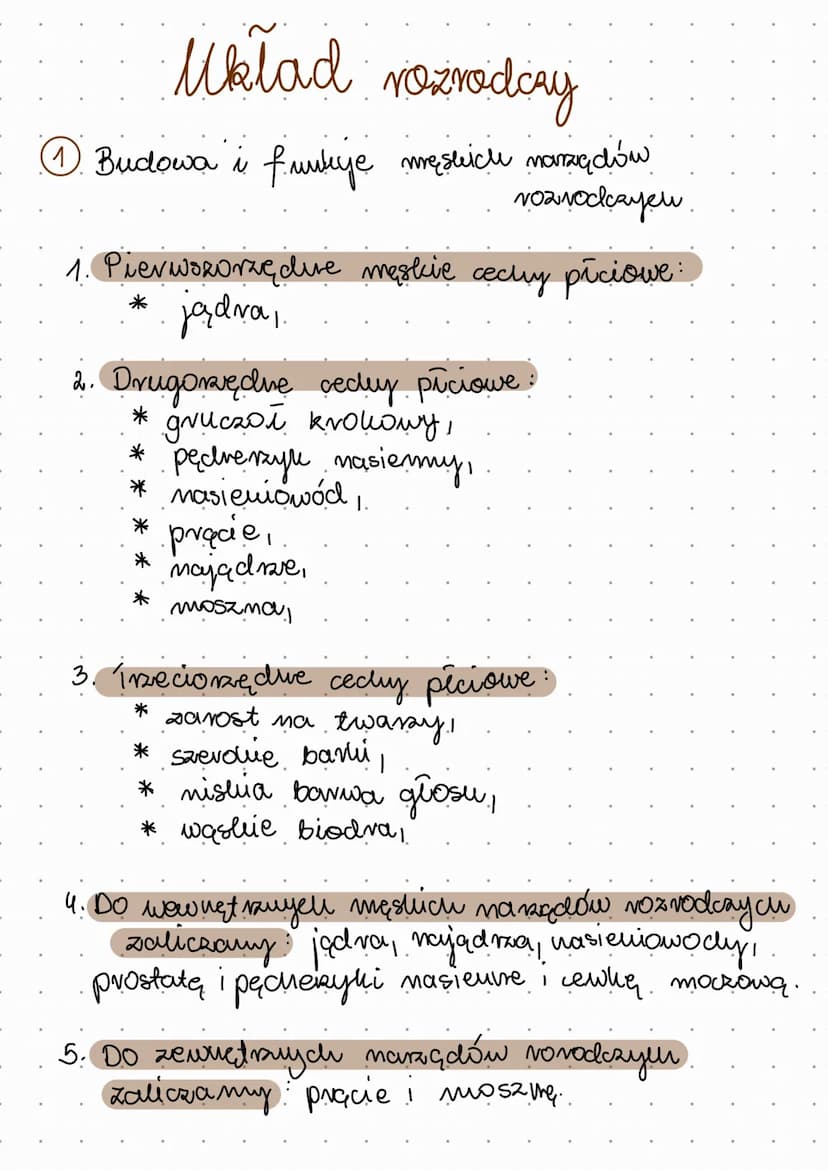 Układ rozrodczy
1 Budowa i funkcje męskich narządów
rozrodczych
1. Pierwszorzędne męskie cechy płciowe:
* jądra,
2. Drugorzędne cechy płciowe:
* gruczoł krokowy,
* pęcherzyk nasienny,
* nasieniowód,
* prącie,
* najądrze,
* moszna,
3. Trzeciorzędne cechy płciowe:
* zarost na twarzy,
* szerokie barki,
* niska barwa głosu,
* wąskie biodra,
4. Do wewnętrznych męskich narządów rozrodczych
zaliczamy: jądra, najądrza, nasieniowody,
prostatę i pęcherzyki nasienne i cewkę moczową.
5. Do zewnętrznych narządów rozrodczych
zaliczamy: prącie i mosznę.